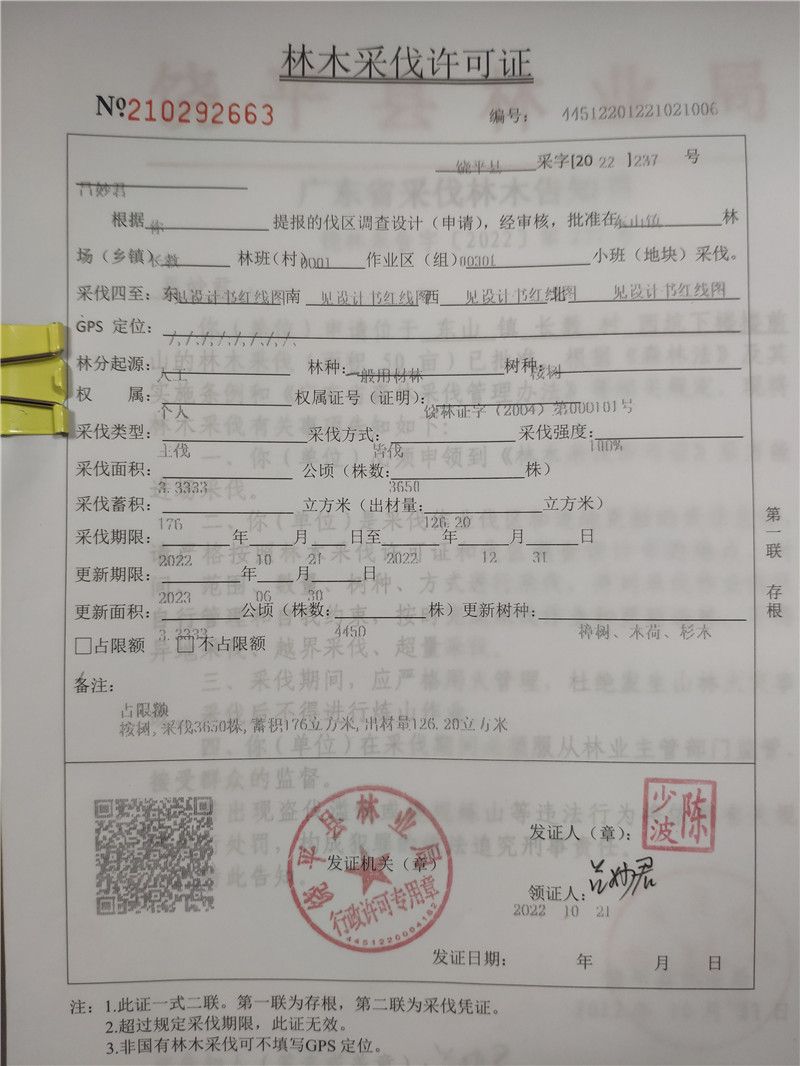 林木采伐许可证
№210292663 编号： 44512201221021006
饶平县 采字[20 22 ]237 号
吕妙君
根据 你 提报的伐区调查设计（申请），经审核，批准在 东山镇 林
场（乡镇） 长教 林班（村） 0001 作业区（组） 00301 小班（地块）采伐。
采伐四至：东 见设计书红线图 南 见设计书红线图 西 见设计书红线图 北 见设计书红线图
GPS 定位： /,/,/,/,/,/,/,/、
林分起源： 人工 林种： 一般用材林 树种： 桉树
权 属： 个人 权属证号（证明）： 饶林证字（2004）第000101号
采伐类型： 主伐 采伐方式： 皆伐 采伐强度： 100%
采伐面积： 3.3333 公顷（株数： 3650 株）
采伐蓄积： 176 立方米（出材量： 126.20 立方米）
采伐期限： 2022 年 10 月 21 日至 2022 年 12 月 31 日
更新期限： 2023 年 06 月 30 日
更新面积： 3.3333 公顷（株数： 4450 株）更新树种： 樟树、木荷、杉木
□占限额 □不占限额
备注：
占限额
桉树,采伐3650株,蓄积176立方米,出材量126.20立方米
第一联 存根
饶平县林业局
行政许可专用章
4451220004162
发证机关（章）
发证人（章）：
陈少波
领证人： 吕妙君
2022 10 21
发证日期： 年 月 日
注：1.此证一式二联。第一联为存根，第二联为采伐凭证。
2.超过规定采伐期限，此证无效。
3.非国有林木采伐可不填写GPS 定位。